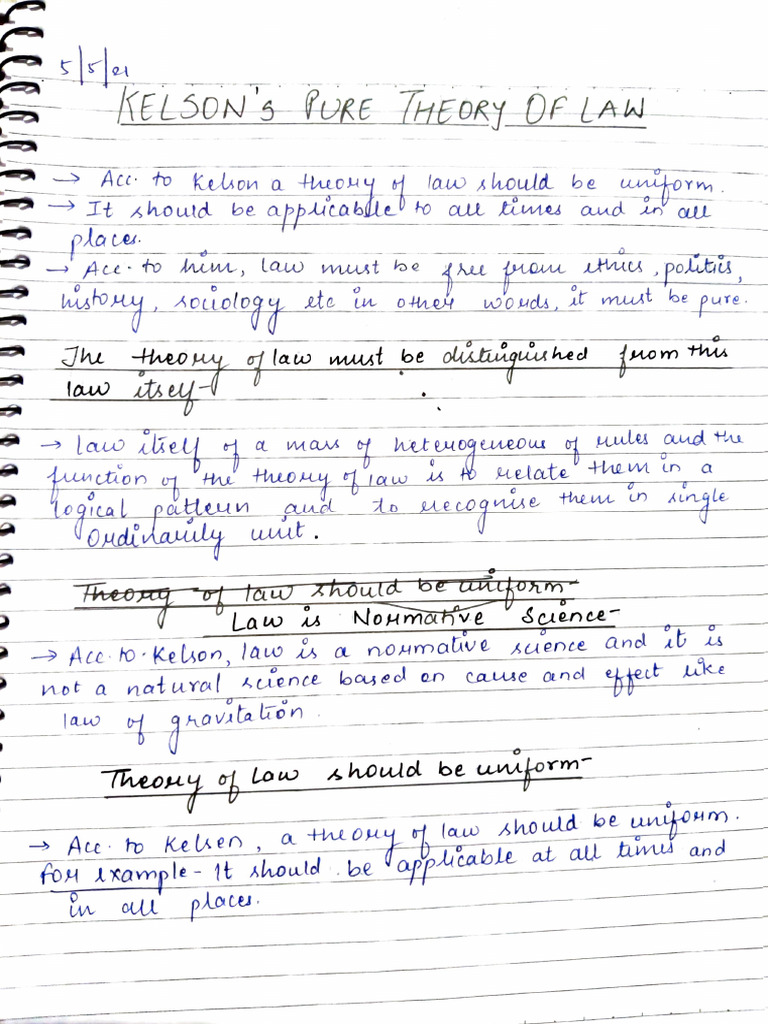 5/5/21
KELSON's PURE THEORY OF LAW
→ Acc. to Kelson a theory of law should be uniform.
→ It should be applicable to all times and in all
places.
→ Acc. to him, law must be free from ethics, politics,
history, sociology etc in other words, it must be pure.
The theory of law must be distinguished from this
law itself-
→ law itself of a mass of heterogeneous of rules and the
function of the theory of law is to relate them in a
logical pattern and to recognise them in single
Ordinarily unit.
Theory of law should be uniform-
Law is Normative Science-
→ Acc. to. Kelson, law is a normative science and it is
not a natural science based on cause and effect like
law of gravitation.
Theory of Law should be uniform-
→ Acc. to Kelsen, a theory of law should be uniform.
for example - It should be applicable at all times and
in all places.